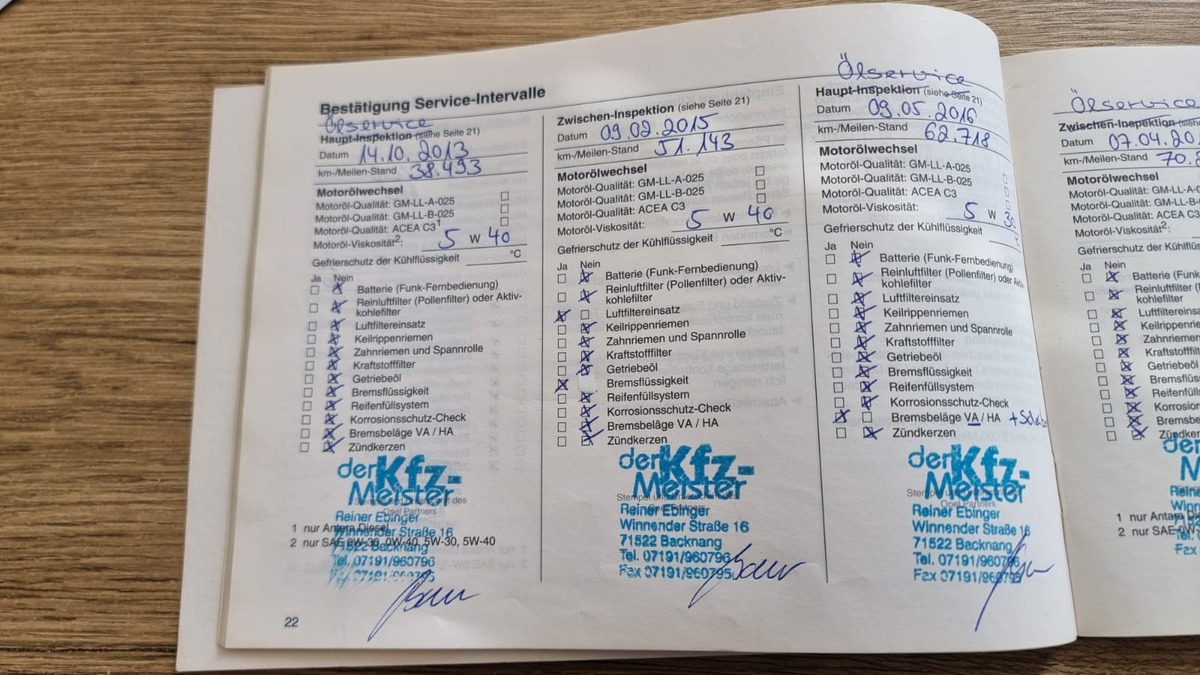 Bestätigung Service-Intervalle
Ölservice
Haupt-Inspektion (siehe Seite 21)
Datum 14.10.2013
km-/Meilen-Stand 38.493
Motorölwechsel
Motoröl-Qualität: GM-LL-A-025
Motoröl-Qualität: GM-LL-B-025
Motoröl-Qualität: ACEA C3¹
Motoröl-Viskosität²: 5 W 40
Gefrierschutz der Kühlflüssigkeit °C
Ja Nein
Batterie (Funk-Fernbedienung)
Reinluftfilter (Pollenfilter) oder Aktiv-
kohlefilter
Luftfiltereinsatz
Keilrippenriemen
Zahnriemen und Spannrolle
Kraftstofffilter
Getriebeöl
Bremsflüssigkeit
Reifenfüllsystem
Korrosionsschutz-Check
Bremsbeläge VA / HA
Zündkerzen
der Kfz-
Meister
Reiner Ebinger
Winnender Straße 16
71522 Backnang
Tel. 07191/960796
Fax 07191/960795
1 nur Antara Diesel
2 nur SAE 0W-30, 0W-40, 5W-30, 5W-40
22
Zwischen-Inspektion (siehe Seite 21)
Datum 09.02.2015
km-/Meilen-Stand 51.143
Motorölwechsel
Motoröl-Qualität: GM-LL-A-025
Motoröl-Qualität: GM-LL-B-025
Motoröl-Qualität: ACEA C3
Motoröl-Viskosität: 5 W 40
Gefrierschutz der Kühlflüssigkeit °C
Ja Nein
Batterie (Funk-Fernbedienung)
Reinluftfilter (Pollenfilter) oder Aktiv-
kohlefilter
Luftfiltereinsatz
Keilrippenriemen
Zahnriemen und Spannrolle
Kraftstofffilter
Getriebeöl
Bremsflüssigkeit
Reifenfüllsystem
Korrosionsschutz-Check
Bremsbeläge VA / HA
Zündkerzen
der Kfz-
Meister
Reiner Ebinger
Winnender Straße 16
71522 Backnang
Tel. 07191/960796
Fax 07191/960795
Ölservice
Haupt-Inspektion (siehe Seite 21)
Datum 09.05.2016
km-/Meilen-Stand 62.718
Motorölwechsel
Motoröl-Qualität: GM-LL-A-025
Motoröl-Qualität: GM-LL-B-025
Motoröl-Qualität: ACEA C3
Motoröl-Viskosität: 5 W 30
Gefrierschutz der Kühlflüssigkeit
Ja Nein
Batterie (Funk-Fernbedienung)
Reinluftfilter (Pollenfilter) oder Aktiv-
kohlefilter
Luftfiltereinsatz
Keilrippenriemen
Zahnriemen und Spannrolle
Kraftstofffilter
Getriebeöl
Bremsflüssigkeit
Reifenfüllsystem
Korrosionsschutz-Check
Bremsbeläge VA / HA
Zündkerzen
der Kfz-
Meister
Reiner Ebinger
Winnender Straße 16
71522 Backnang
Tel. 07191/960796
Fax 07191/960795
Ölservice
Zwischen-Inspektion
Datum 07.04.20
km-/Meilen-Stand 70.
Motorölwechsel
Motoröl-Qualität: GM-LL-A
Motoröl-Qualität: GM-LL-B
Motoröl-Qualität: ACEA C3
Motoröl-Viskosität²:
Gefrierschutz der Kühlflüs
Ja Nein
Batterie (Funk-F
Reinluftfilter (P
kohlefilter
Luftfiltereinsatz
Keilrippenriemen
Zahnriemen
Kraftstofffilter
Getriebeöl
Bremsflüssig
Reifenfüllsys
Korrosions
Bremsbeläge
Zündkerzen
der
Reiner
Winn
Tel.
Fax
1 nur Antara D
2 nur SAE 0W